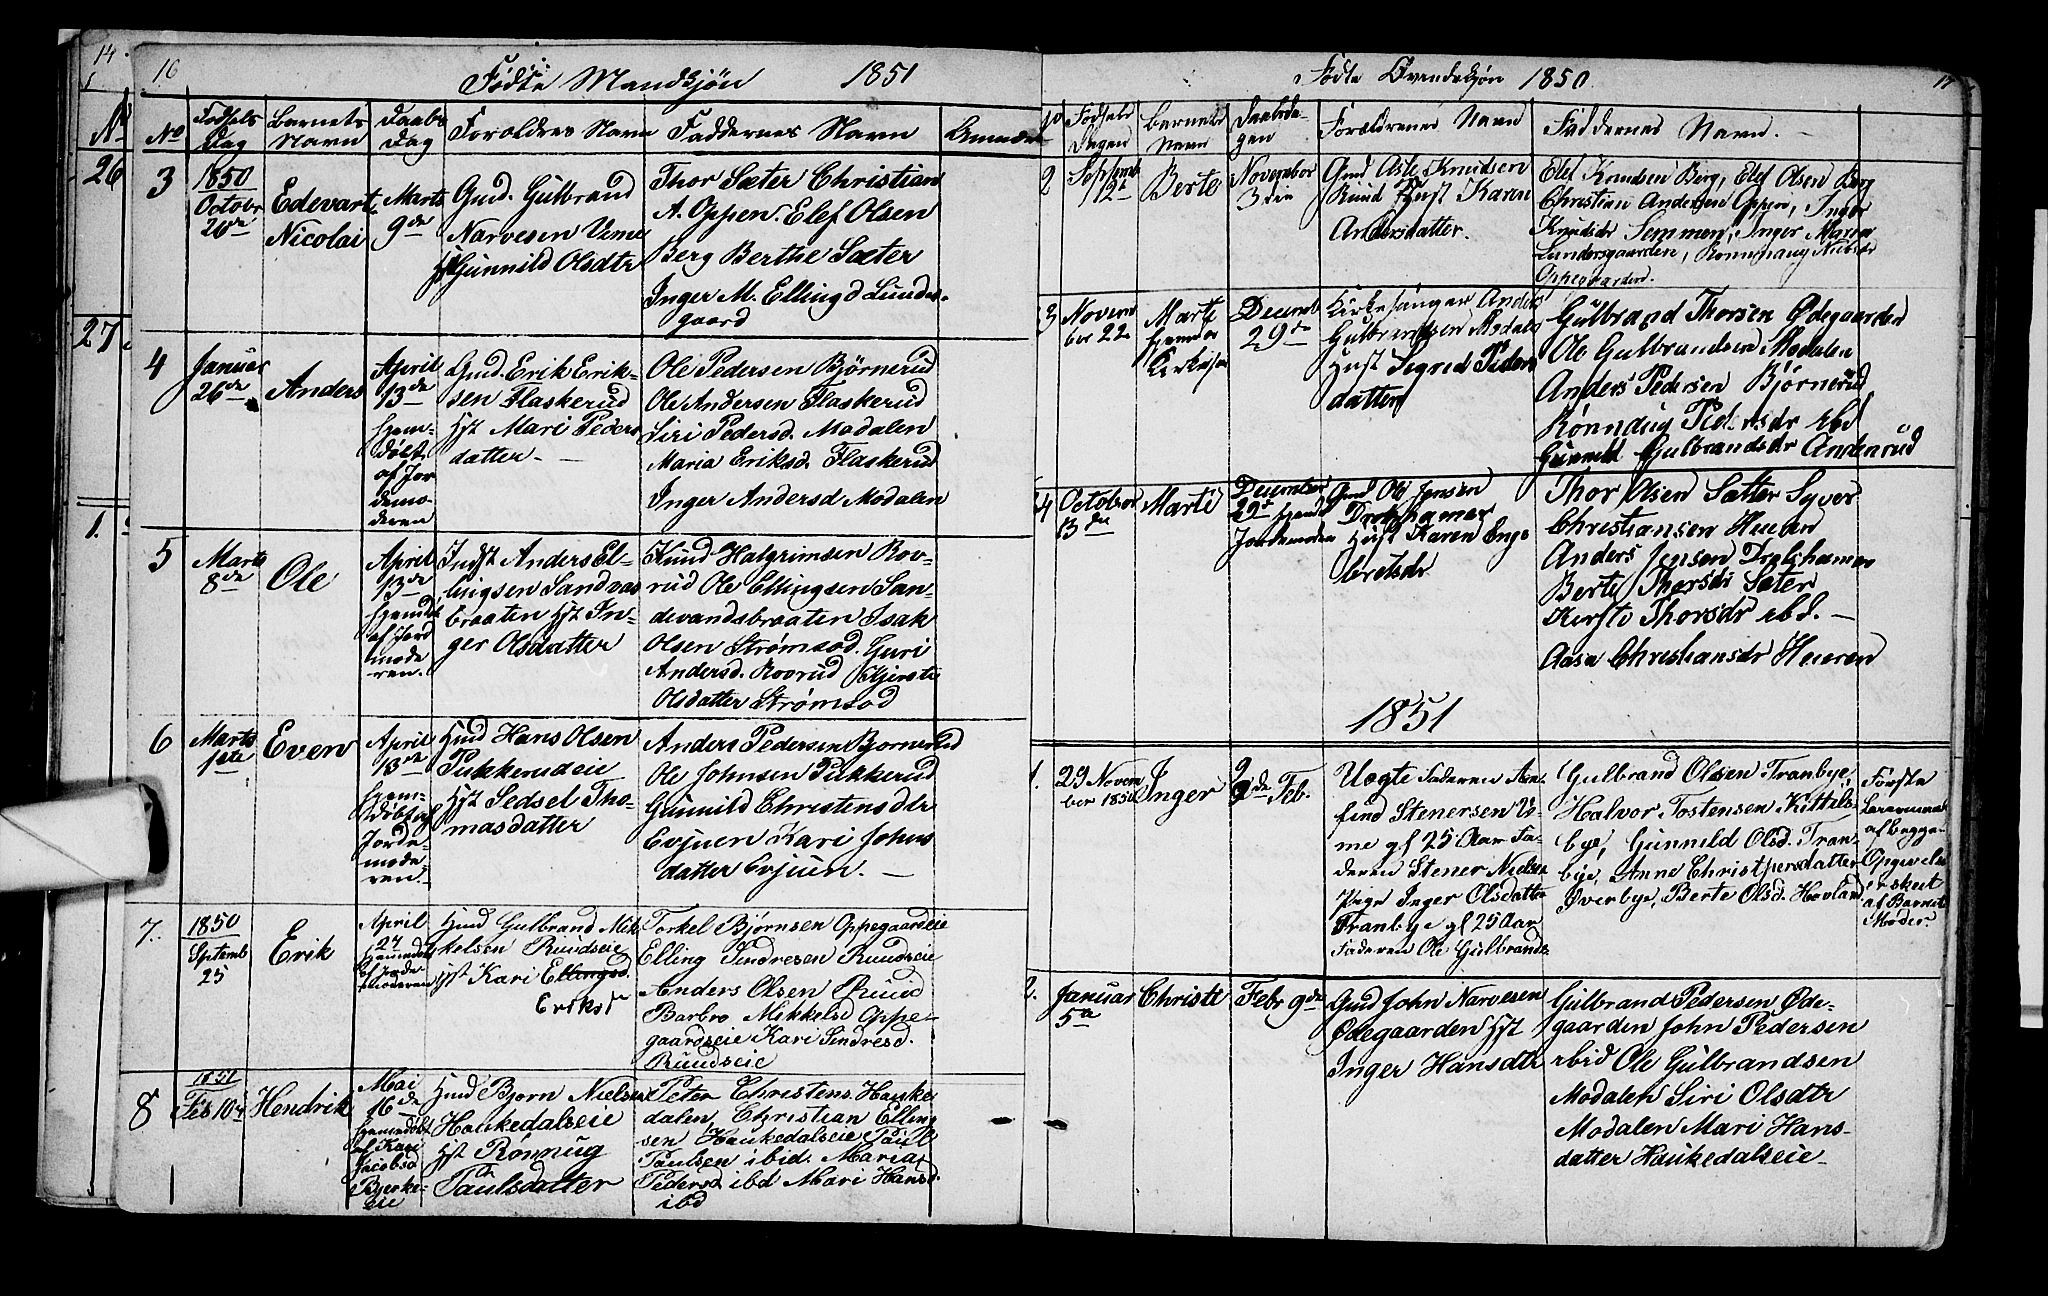 14
16
Fødte Mandkjøn 1851
No
No Fødsels Dag Barnets Navn Daabs Dag Forældres Navn Faddernes Navn Anmærk
26
27
1.
3 1850 Octobr 26de Edevart Nicolai Marts 9de
Gmd. Gulbrand
Narvesen Veme
Gunnild Olsdtr
Thor Sæter Christian
A. Oppen. Elef Olsen
Berg Berthe Sæter
Inger M. Ellingd Lunders-
gaard
4 Januar 26de Anders
April
13de
hjem-
døbt
af Jor
demo-
deren
Gmd. Erik Erik-
sen Flaskerud
Hst Mari Peders
datter -
Ole Pedersen Bjørnerud
Ole Andersen Flaskerud
Siri Pedersd. Modalen
Maria Eriksd. Flaskerud
Inger Andersd Modalen
5 Marts 8de Ole
April
13de
hjemdbt
af Jord
mode
ren.
Indst Anders El-
lingsen Sandvas
braaten Hst In-
ger Olsdatter
Knud Halgrimsen Rov-
rud Ole Ellingsen San-
devandsbraaten Isak
Olsen Strømsod. Guri
Andersd. Rovrud Kjersti
Olsdatter Strømsod
6 Marts 1ste Even
April
13de
hjem-
døbt af
Jorde-
mode-
ren.
Hmd Hans Olsen
Pukkerudeie
Hst Sedsel Tho-
masdatter
Anders Pedersen Bjornerud
Ole Johnsen Pukkerud
Gunnild Christensdtr
Evjuen Kari Johns
datter Evjuen. -
7. 1850 Septemb 25 Erik
April
27
hjemmedøbt
af Jorde
moderen
Hmd Gulbrand Mik
kelsen Ruudseie
Hst Kari Ellingsd.
Eriksd
Torkel Bjørnsen Oppegaardseie
Elling Sindresen Ruudseie
Anders Olsen Ruud
Barbro Mikkelsd Oppe-
gaardseie Kari Sindresd.
Ruudseie
8 1851 Feb 10de Hendrik
Mai
16de
hjemdøbt
af Kari
Jacobsd
Bjerke-
eie
Hmd Bjorn Nielsen
Haukedalseie
Hst Rønnug
Paulsdatter
Peter Christens. Hauke
dalen, Christian Elling
sen Haukedalseie Paul
Paulsen ibid. Maria
Pedersd ibd Mari Hansd.
ibd
Fødte Qvendekjøn 1850.
17
No Fødsels Dagen Barnets Navn Daabsda- gen Forældrenes Navn Faddernes Navn. -
2 Septemb 12te Berte November 3die
Gmd Asle Knudsen
Ruud Hust Karen
Andersdatter.
Elef Knudsen Berg, Elef Olsen Berg
Christian Andersen Oppen, Inger
Knudsdr Semmen, Inger Maria
Lundersgaarden, Rønnaug Nubsdr
Oppegaarden.
3 Novem ber 22 Marte hjemdø Kirkesa Decemb 29de
Kirkesanger Anders
Gulbrandsen Modalen
Hust Sigred Peders
datter
Gulbrand Thorsen Ødegaarden
Ole Gulbrandsen Modalen
Anders Pedersen Bjørnerud
Rønnaug Pedersdr ibd
Gunnild Gulbrandsdr Anderud
4 October 13de Marte
December
29de hjemd
Jordemoden
Gmd Ole Jensen
Drolshamer
Hust Karen Enge
bretsdr
Thor Olsen Sætter Syver
Christiansen Hueren
Anders Jensen Drolshamer
Berte Thorsdr Sæter
Kersti Thorsdr ibd. -
Aase Christiansdr Hueren
1851
1. 29 Novem ber 1850 Inger 2de Feb.
Uægte Faderen An-
find Stenersen Ve-
me gl 25 Aar Fa-
deren Stener Nielsen
Pige Inger Olsdatter
Tranbye gl 25 Aar
Faderen Ole Gulbrands.
Gulbrand Olsen Tranbye,
Halvor Tostensen Kittels-
bye, Gunnild Olsd. Tran-
bye, Anne Christpersdatter
Øverbye, Berte Olsd. Hovland
Første
Leiermaal
af begge.
Opgivelse
erskeet
af Barnets
Moder.
2. Januar 5te Christi Febr 9de
Gmd John Narvesen
Ødegaarden Hst
Inger Hansdtr
Gulbrand Pedersen Øde-
gaarden John Pedersen
ibid Ole Gulbrandsen
Modalen Siri Olsdtr
Modalen Mari Hans-
datter Haukedalseie